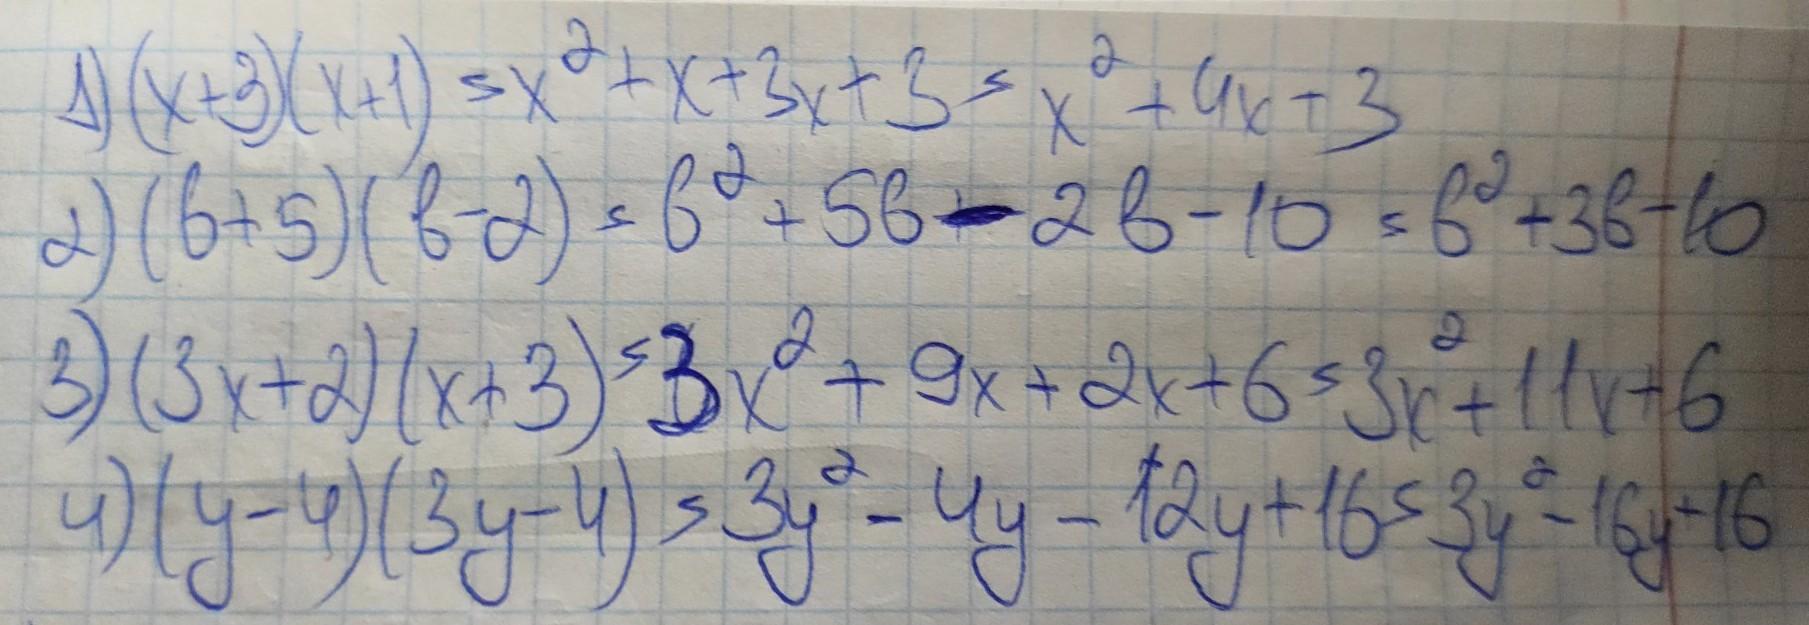 1) (x+3)(x+1) = x² + x + 3x + 3 = x² + 4x + 3
2) (b+5)(b-2) = b² + 5b - 2b - 10 = b² + 3b - 10
3) (3x+2)(x+3) = 3x² + 9x + 2x + 6 = 3x² + 11x + 6
4) (y-4)(3y-4) = 3y² - 4y - 12y + 16 = 3y² - 16y + 16